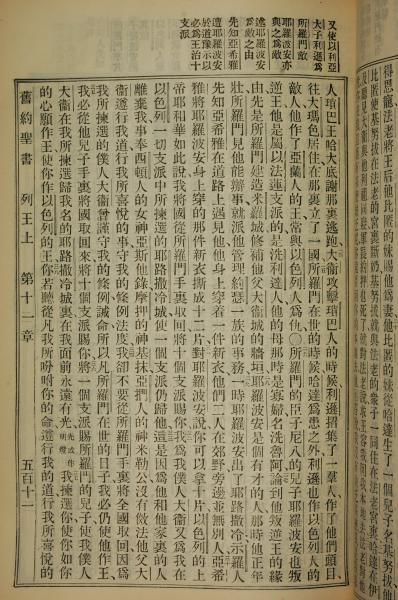 得恩寵法老將王后他比匿的妹賜他爲妻他比匿的妹從哈達生了一個兒子名基努拔
又使以利亞
大子利遜爲
所羅門敵
耶羅波安亦
與之爲敵
述耶羅波安
爲敵之由
先知亞希雅
遣耶羅波安
於道豫示以
必爲王治十
支派
人瑣巴王哈大底謝那裏逃跑大衞攻擊瑣巴人的時候利遜招集了一羣人作了他們頭目
往大瑪色居住在那裏立了一國所羅門在世的時候哈達爲患之外利遜也作以色列人的
敵人他作了亞蘭人的王常與以色列人爲仇〇所羅門的臣子尼八的兒子耶羅波安也叛
逆王他是屬以法蓮支派的是洗利達人他的母那時是寡婦名洗魯阿論到他叛逆王的緣
由先是所羅門建造米羅城修補他父大衞城的牆垣耶羅波安是個有才的人那時他正年
壯所羅門見他能辦事就派他管理約瑟一族的事務一時耶羅波安出了耶路撒冷示羅人
先知亞希雅在道路上遇見他他身上穿着一件新衣他們二人在郊野旁邊並無別人亞希
雅將耶羅波安身上穿的那件新衣撕成十二片對耶羅波安說你可以拿十片以色列的上
帝耶和華如此說我將國從所羅門手裏取回將十個支派賜你我爲我僕人大衞又爲我在
以色列一切支派中所揀選的耶路撒冷城使一個支派仍歸他這是因爲他和他家裏的人
離棄我事奉西頓人的女神亞斯他錄摩押的神基抹亞捫人的神米勒公沒有傚法他父大
衞遵行我道行我所喜悅的事守我的條例法度我卻不要從所羅門手裏將全國取回因爲
我所揀選的僕人大衞曾謹守我的條例誡命所以凡所羅門在世的日子我必仍使他作王
我必從他兒子手裏將國取回來將十個支派賜你將一個支派賜所羅門的兒子使我僕人
大衞在我所揀選歸我名的耶路撒冷城裏在我面前永遠有光光或作明燈我揀選你使你如你
的心願作王使你作以色列的王你若聽從凡我所吩咐你的命遵行我的道行我所喜悅的
舊約聖書 列王上 第十一章 五百十一